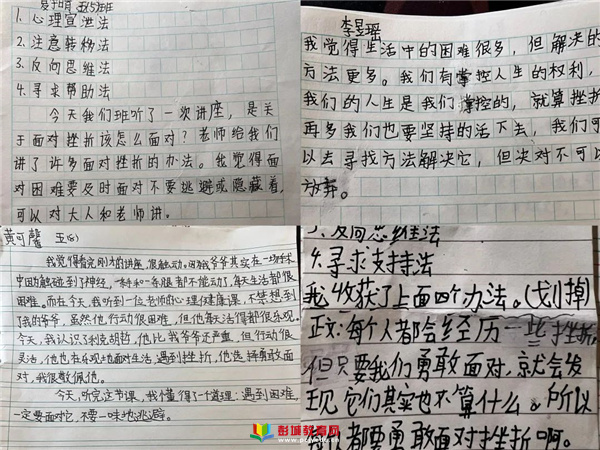 五(5)班
1. 心理宣泄法
2. 注意转移法
3. 反向思维法
4. 寻求帮助法
今天我们班听了一次讲座，是关
于面对挫折该怎么面对？老师给我们
讲了许多面对挫折的办法。我觉得面
对困难要及时面对不要逃避或隐藏着，
可以对大人和老师讲。
李昱瑶
我觉得生活中的困难很多，但解决的
方法更多。我们有掌控人生的权利，
我们的人生是我们掌控的，就算挫折
再多我们也要坚持的活下去，我们可
以去寻找方法解决它，但决对不可以
放弃。
黄可馨 五(6)
我觉得看完刚才的讲座，很触动。因为爷爷其实在一场手术
中因为触碰到了神经，一条手和一条腿都不能动了，每天生活都很
困难。而在今天，我听到一位老师的心理健康课，不禁想到
了我的爷爷，虽然他行动很困难，但他每天活得都很乐观。
今天，我认识了利克胡哲，他比我爷爷还严重，但行动很
灵活，他也在乐观地面对生活，遇到挫折，他选择勇敢面
对，我很敬佩他。
今天，听完这节课，我懂得了个道理：遇到困难，
一定要面对它，不要一味地逃避。
3、反向思维法
4.寻求支持法
我收获了上面四个办法。(划掉)
正文：每个人都会经历一些挫折，
但只要我们勇敢面对，就会发
现它们其实也不算什么。所以
每人都要勇敢面对挫折啊。
彭城教育网